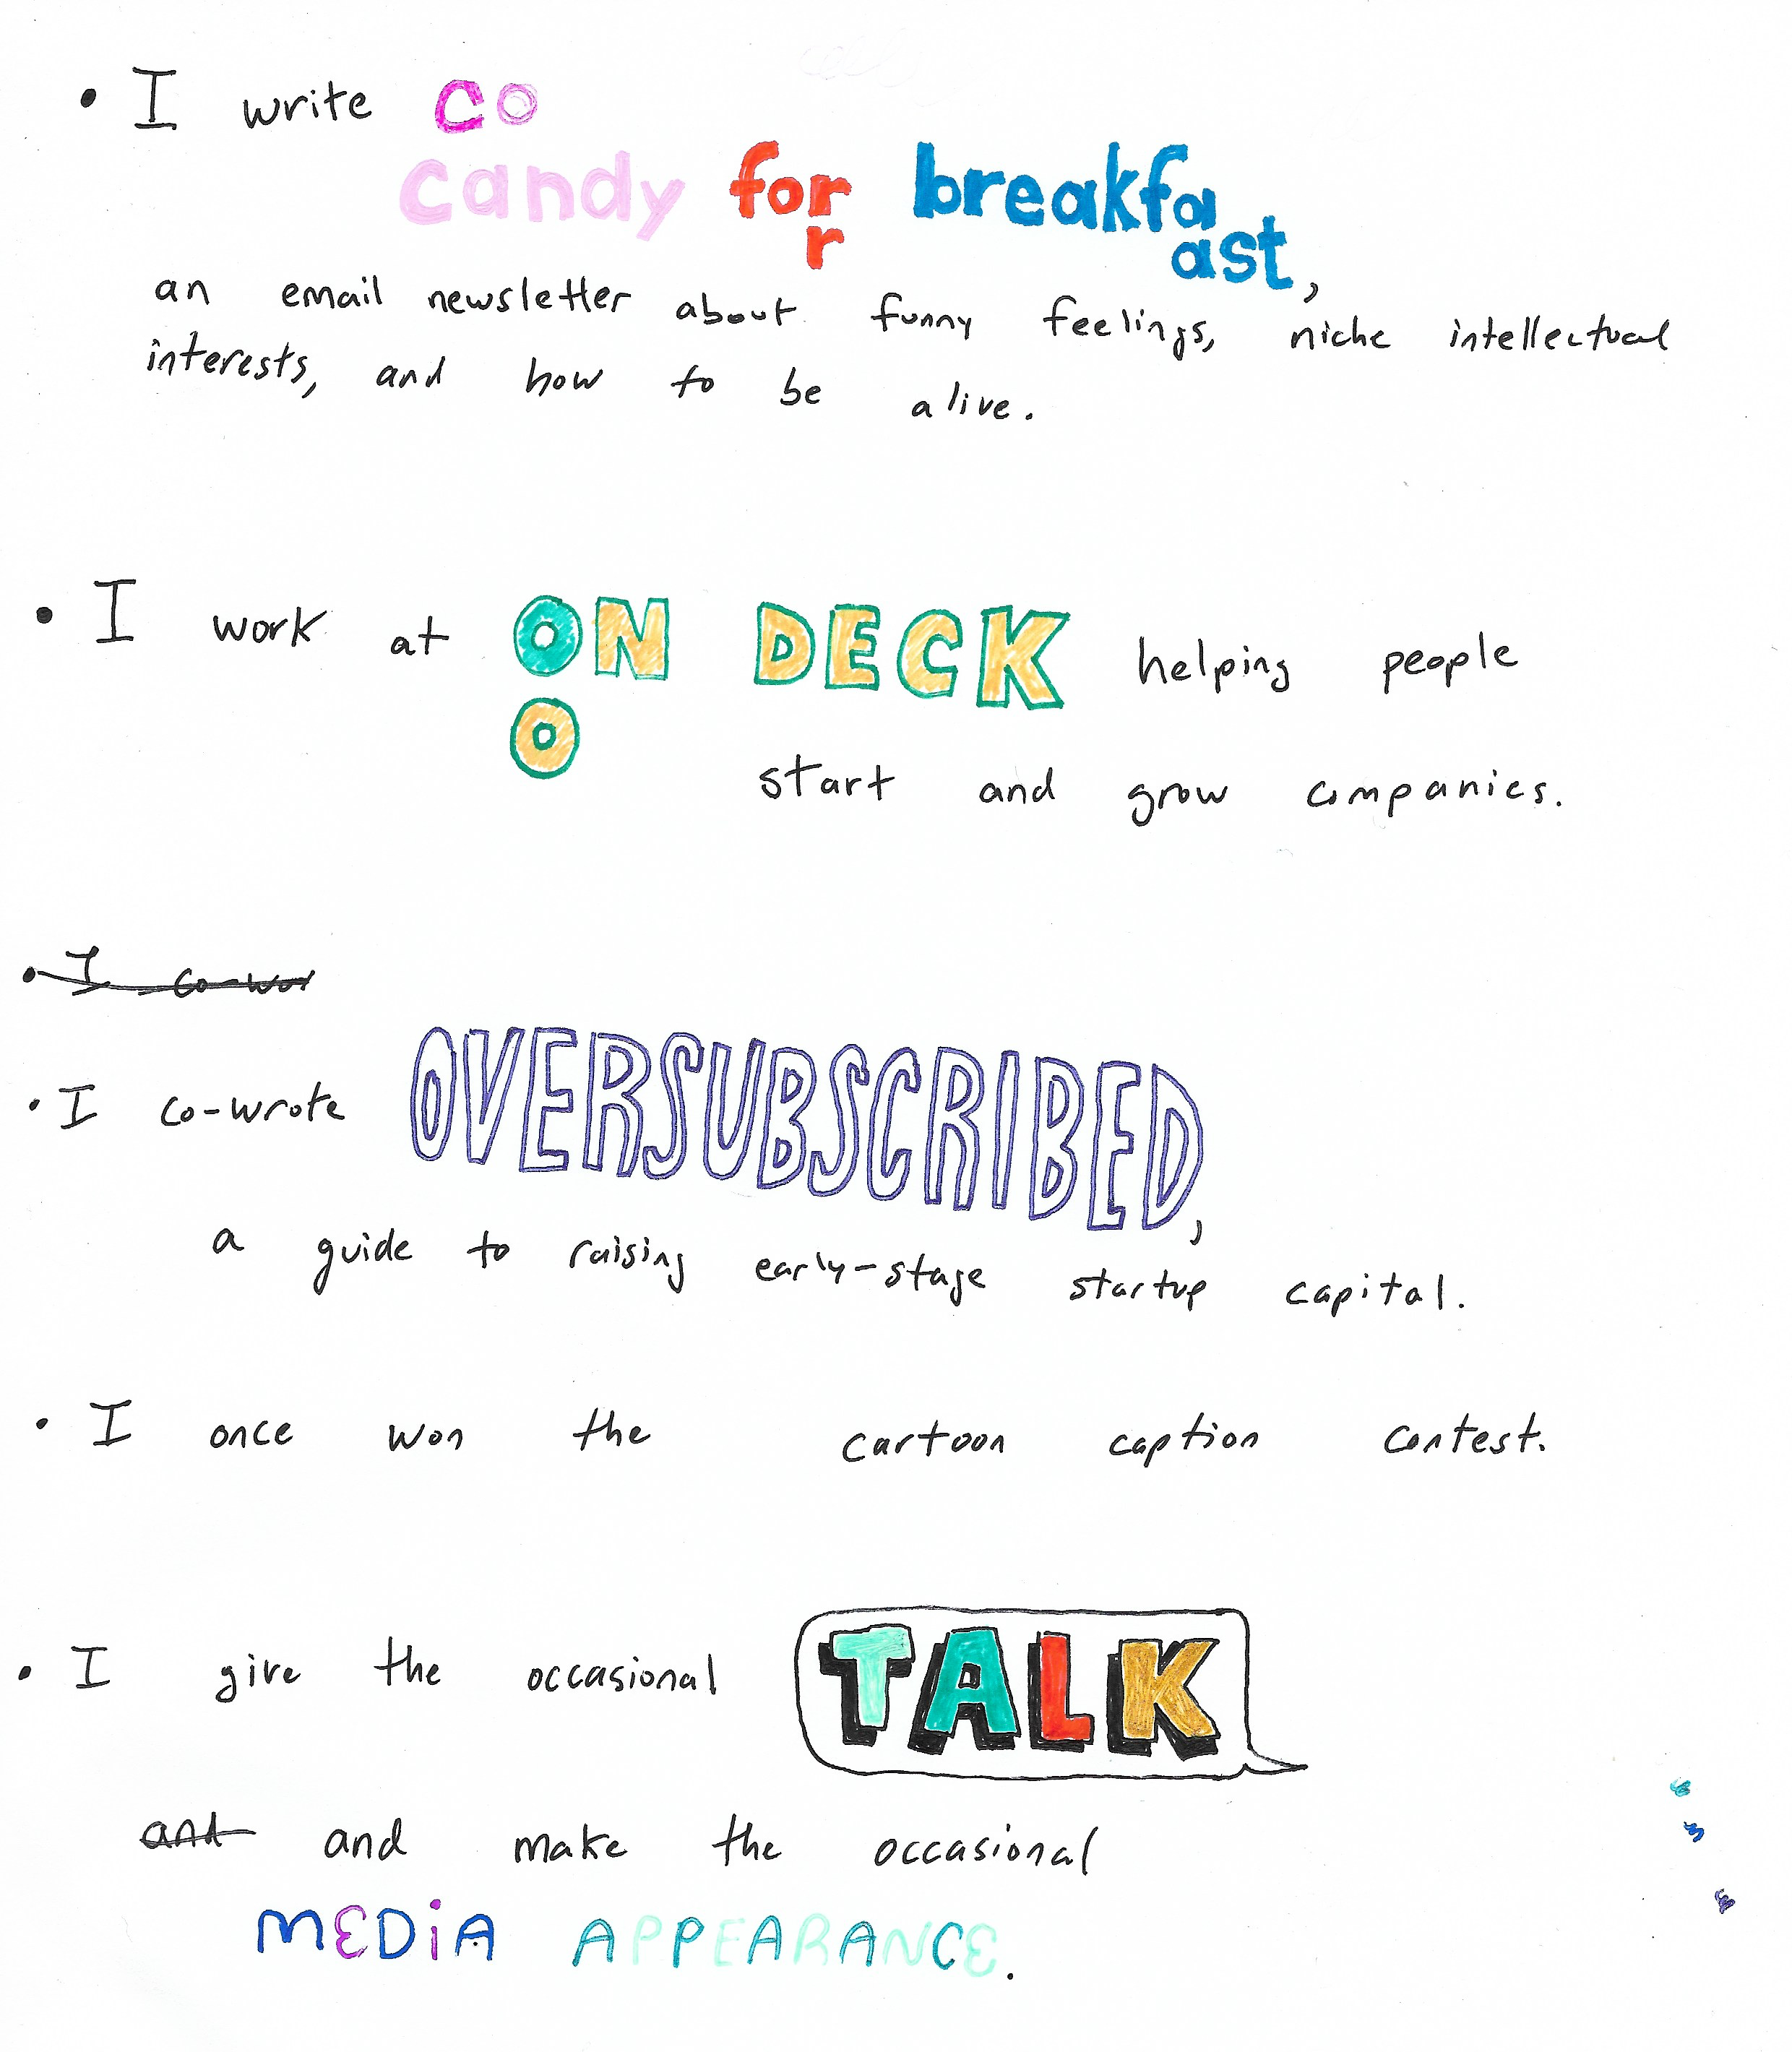 • I write CO
candy for breakfa
r ast,
an email newsletter about funny feelings, niche intellectual
interests, and how to be alive.
• I work at ON DECK helping people
O
start and grow companies.
• I co-wor
• I co-wrote OVERSUBSCRIBED,
a guide to raising early-stage startup capital.
• I once won the cartoon caption contest.
• I give the occasional TALK
and and make the occasional
MEDiA APPEARANCE.